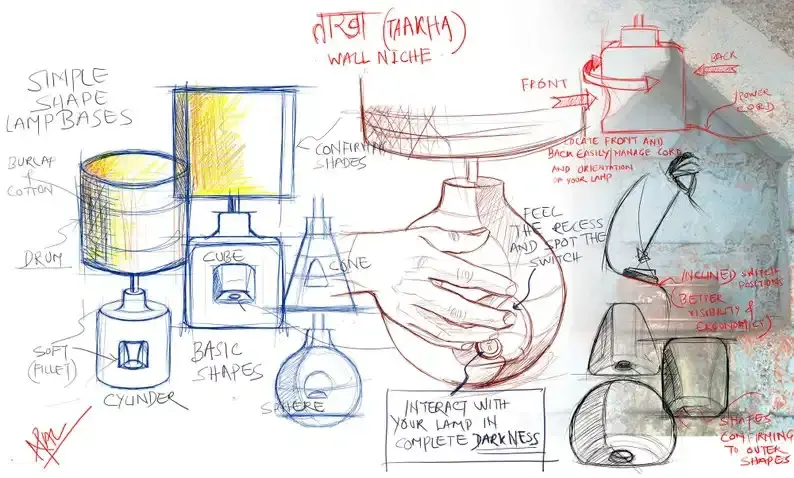 ताखा (TAAKHA)
WALL NICHE
SIMPLE
SHAPE
LAMP BASES
BURLAP
&
COTTON
DRUM
SOFT
(FILLET)
CYLINDER
CUBE
BASIC
SHAPES
CONE
SPHERE
SHADES
FEEL
THE RECESS
AND SPOT THE
SWITCH
INTERACT WITH
YOUR LAMP IN
COMPLETE DARKNESS
FRONT
BACK
POWER
CORD
LOCATE FRONT AND
BACK EASILY/MANAGE CORD
AND ORIENTATION
OF YOUR LAMP
INCLINED SWITCH
POSITIONS
(BETTER
VISIBILITY &
ERGONOMICY)
SHAPES
CONFIRMING
TO OUTER
SHAPES